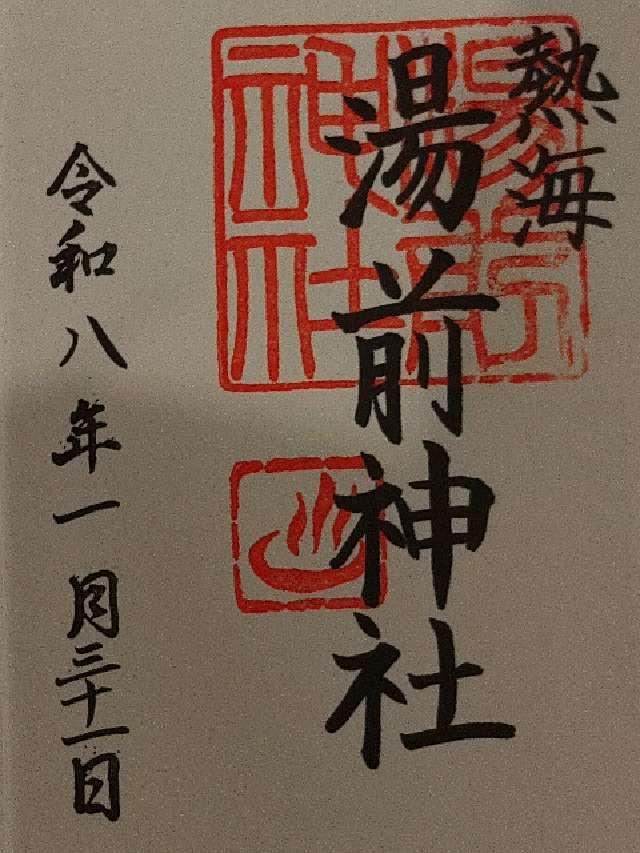 熱海
湯前神社
令和八年一月三十一日
湯前
神社